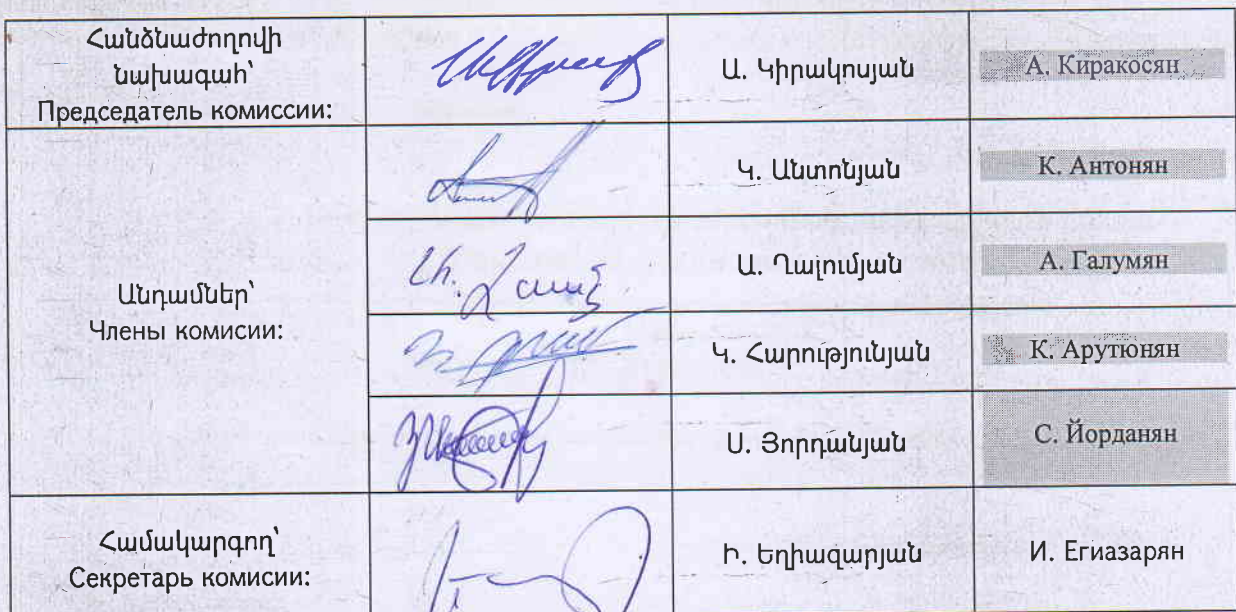 Հանձնաժողովի
նախագահ՝
Председатель комиссии:
Ա. Կիրակոսյան
А. Киракосян
Անդամներ՝
Члены комисии:
Կ. Անտոնյան
К. Антонян
Ա. Ղալումյան
А. Галумян
Կ. Հարությունյան
К. Арутюнян
Ս. Յորդանյան
С. Йорданян
Համակարգող՝
Секретарь комисии:
Ի. Եղիազարյան
И. Егиазарян